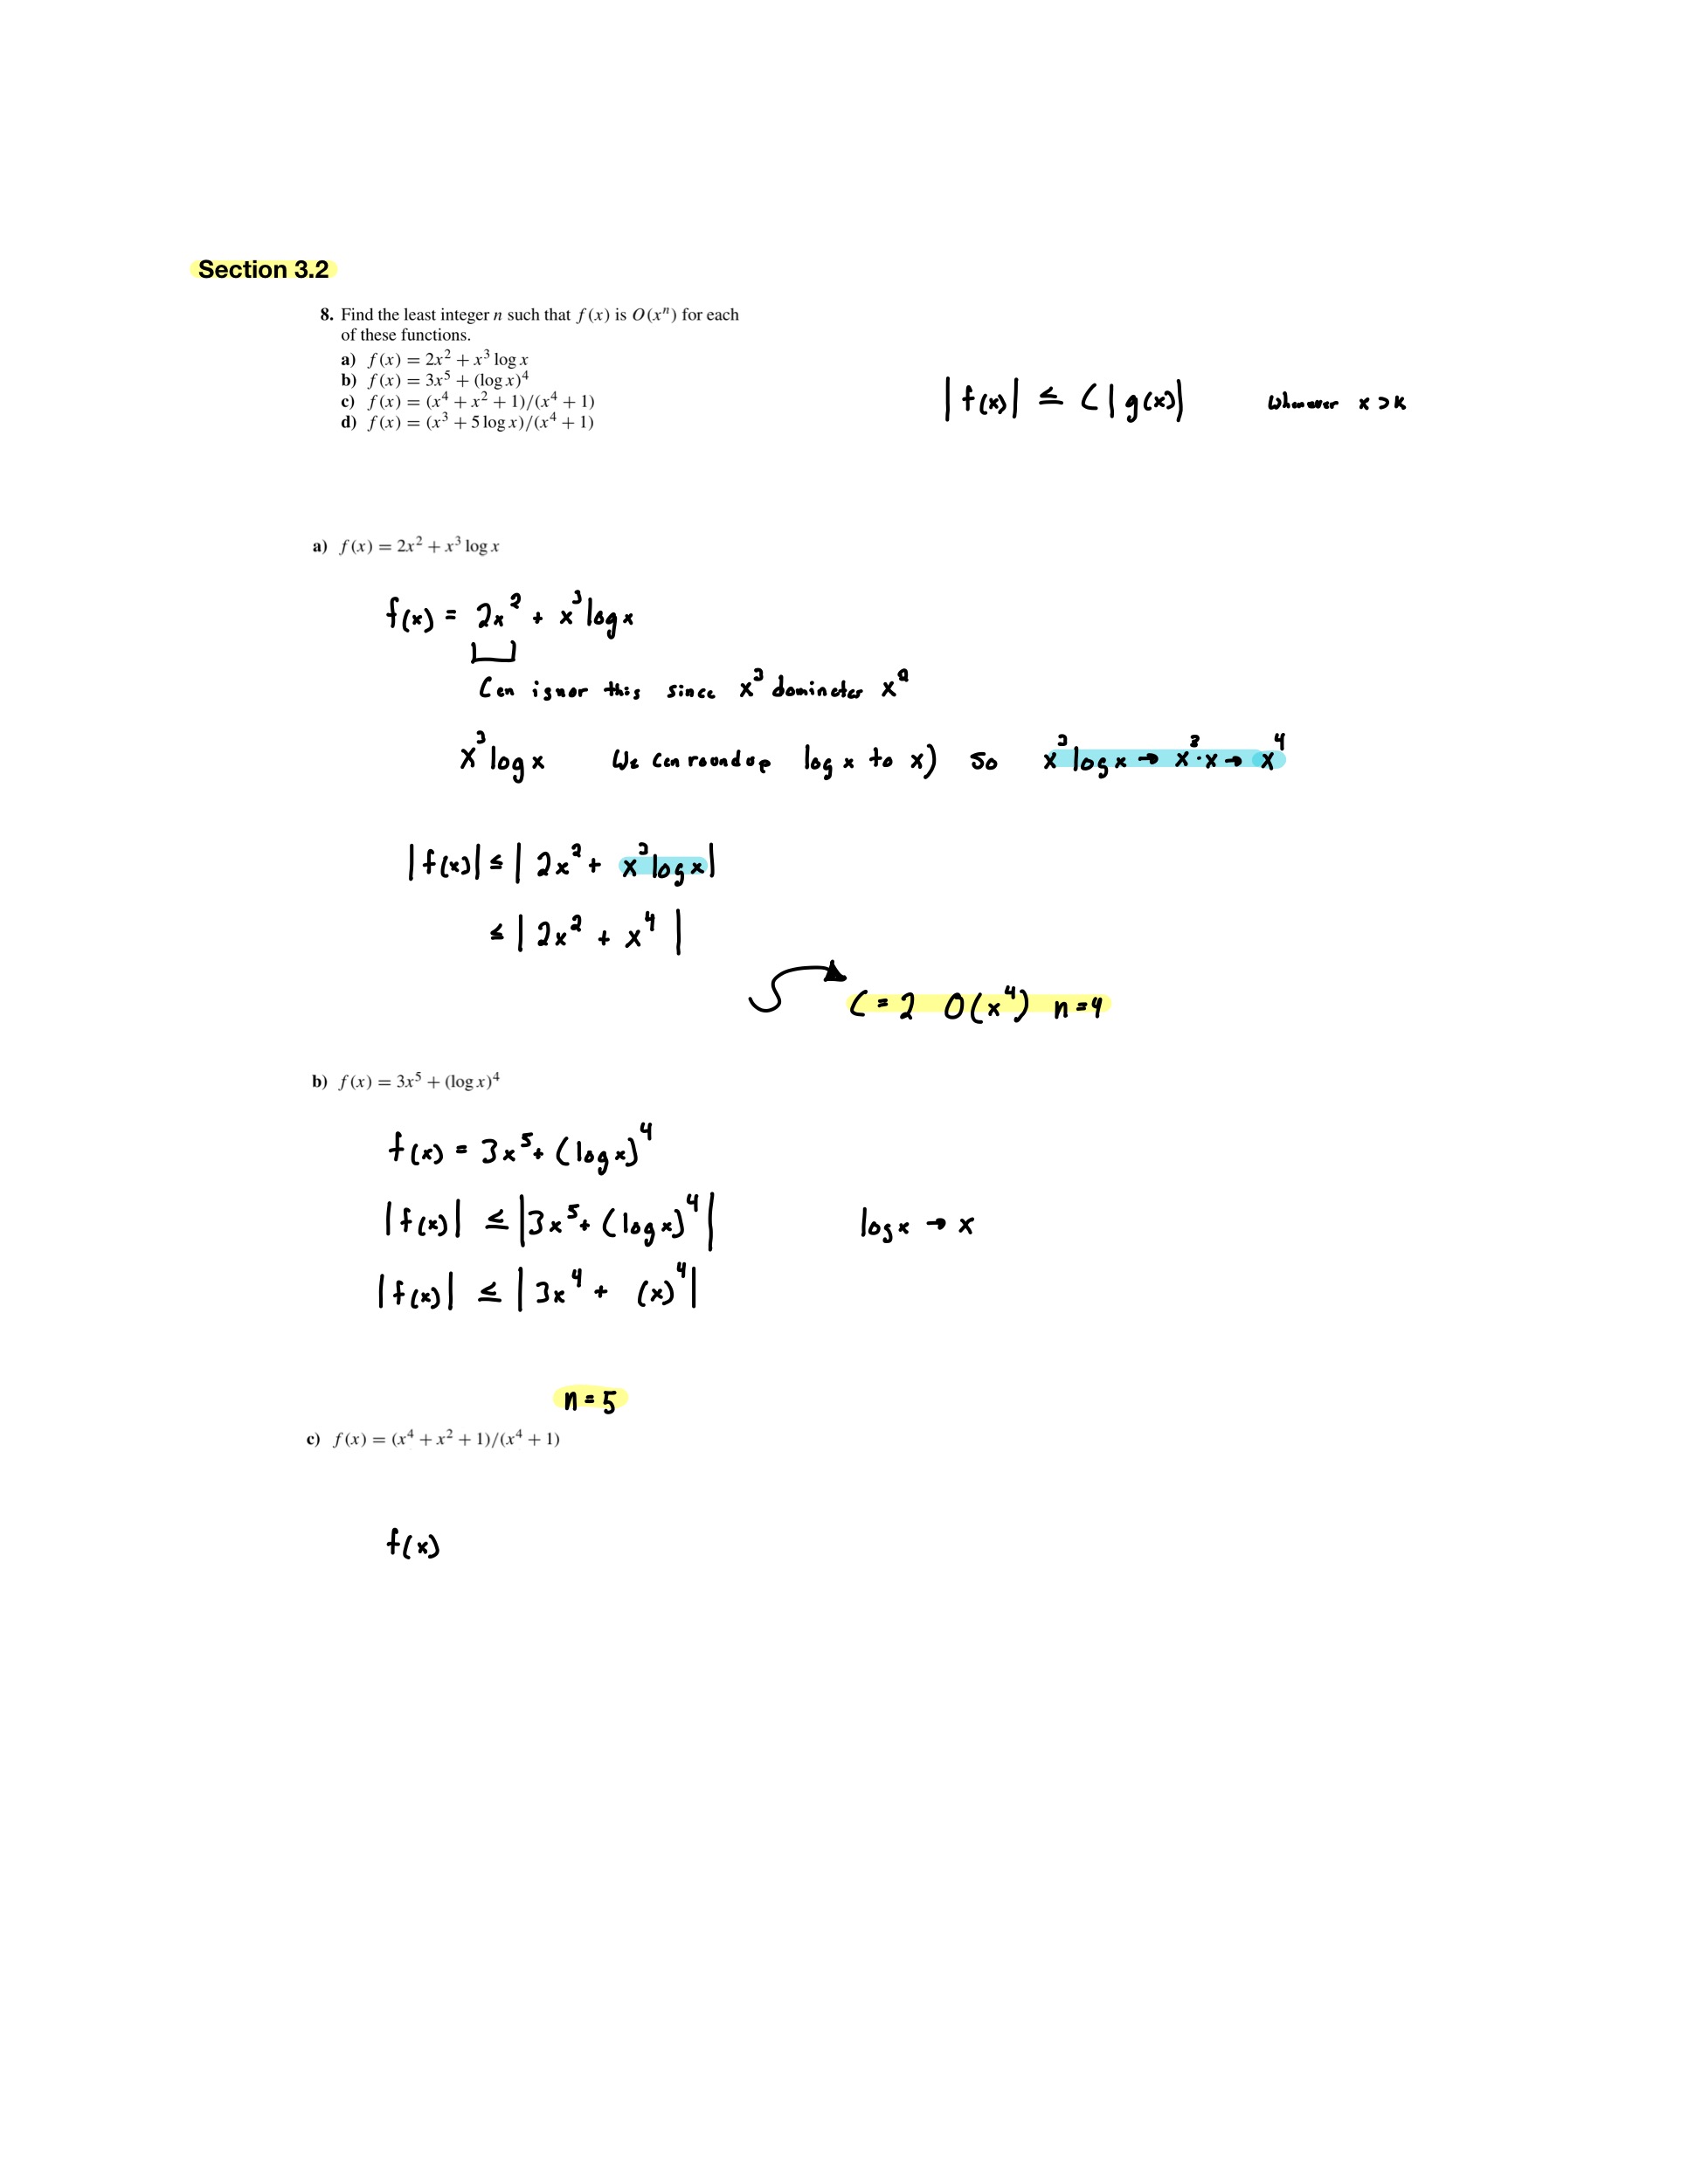 Section 3.2
8. Find the least integer n such that f(x) is O(xⁿ) for each
of these functions.
a) f(x) = 2x² + x³ log x
b) f(x) = 3x⁵ + (log x)⁴
c) f(x) = (x⁴ + x² + 1)/(x⁴ + 1)
d) f(x) = (x³ + 5 log x)/(x⁴ + 1)
|f(x)| ≤ C|g(x)| whenever x > k
a) f(x) = 2x² + x³ log x
f(x) = 2x² + x³ log x
Can ignor this since x³ dominates x²
x³ log x We can roundup log x to x) so x³ log x → x³·x → x⁴
|f(x)| ≤ |2x² + x³ log x|
≤ |2x² + x⁴|
C = 2 O(x⁴) n = 4
b) f(x) = 3x⁵ + (log x)⁴
f(x) = 3x⁵ + (log x)⁴
|f(x)| ≤ |3x⁵ + (log x)⁴| log x → x
|f(x)| ≤ |3x⁴ + (x)⁴|
n = 5
c) f(x) = (x⁴ + x² + 1)/(x⁴ + 1)
f(x)